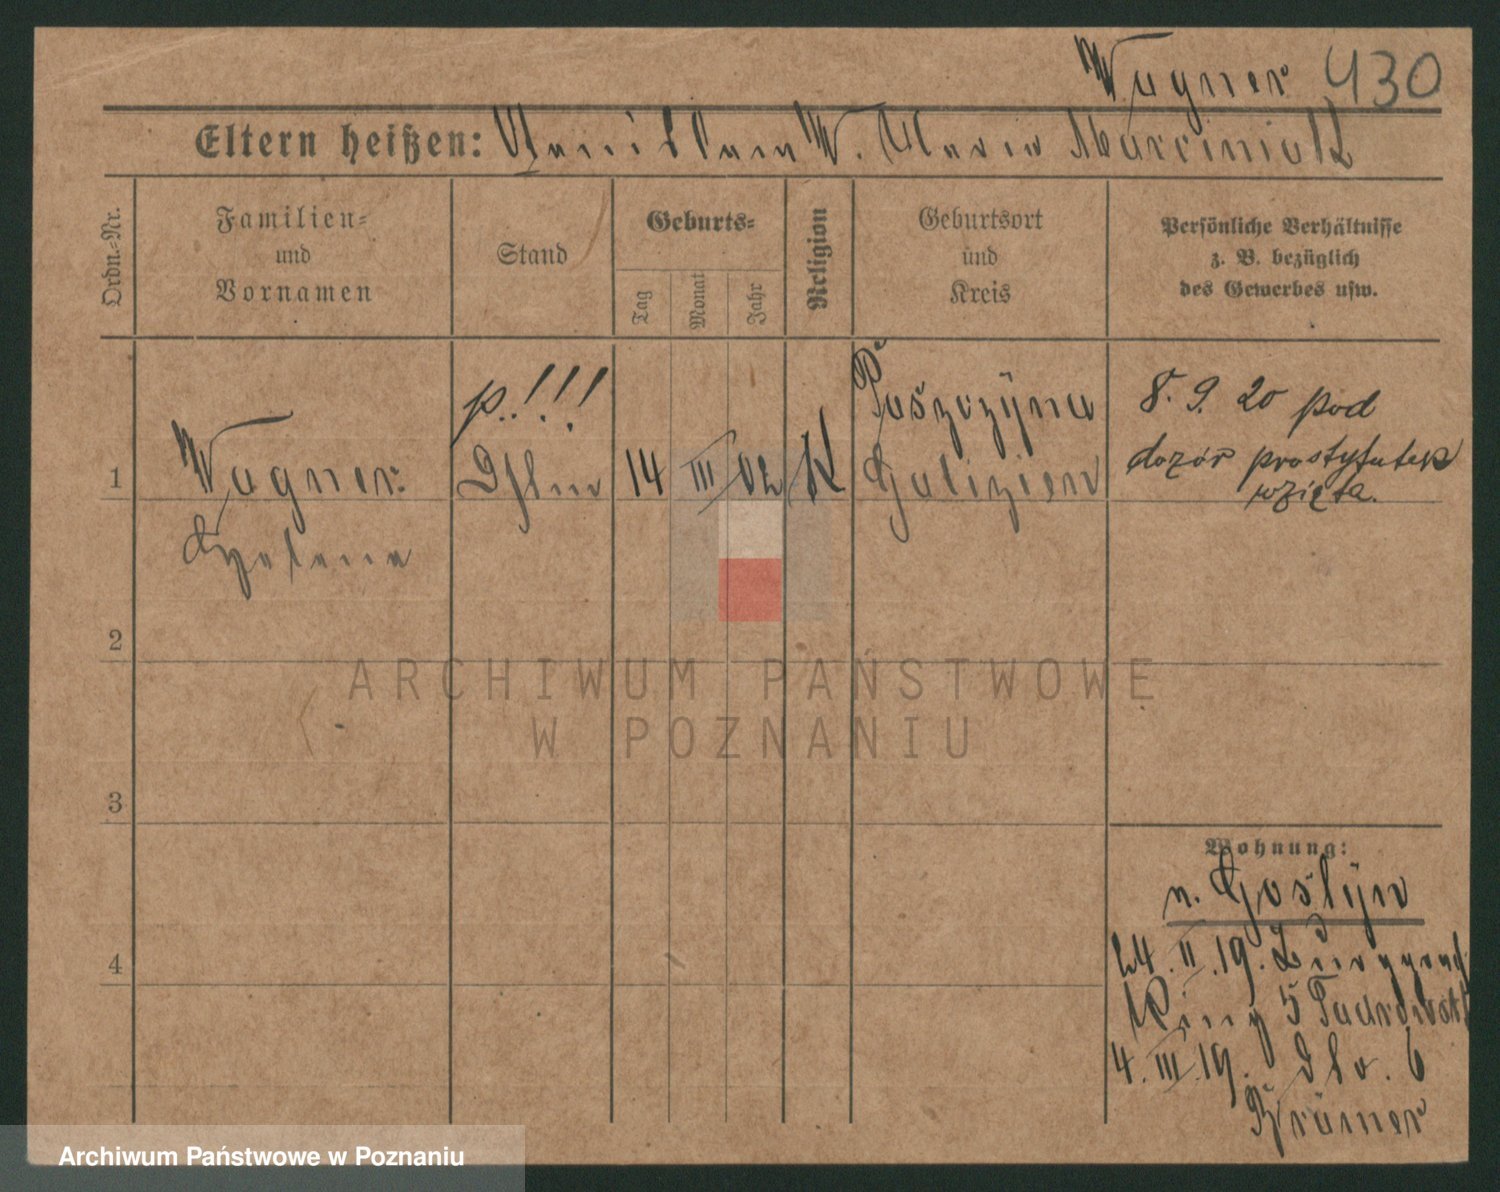 Wagner 430
Eltern heißen: W. Maria Marciniak
Ordn.-Nr.
Familien-
und
Vornamen
Stand
Geburts-
Tag
Monat
Jahr
Religion
Geburtsort
und
Kreis
Persönliche Verhältnisse
z. B. bezüglich
des Gewerbes usw.
p.!!!
1 Wagner 14 III 02 K
Galizien
Helene
8. 9. 20 pod
dozór prostytutek
wzięta.
2
3
4
Wohnung:
n. Gostyn
24. II. 19.
Ring 5
4. III. 19. 6
Krämer
ARCHIWUM PAŃSTWOWE
W POZNANIU
Archiwum Państwowe w Poznaniu